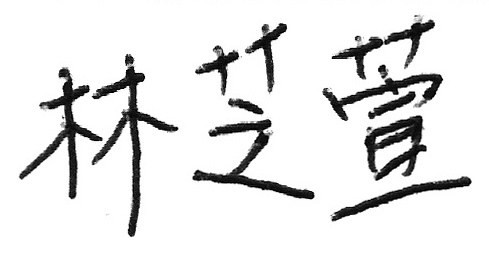 林芝萱